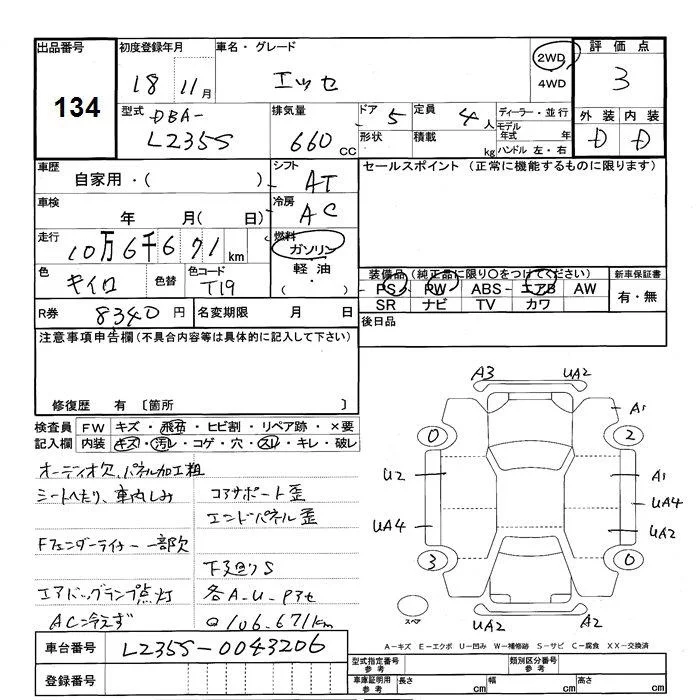 出品番号
134
初度登録年月
18 11月
車名・グレード
エッセ
2WD
4WD
評価点
3
型式
DBA-
L235S
排気量
660 CC
ドア 5
形状
定員 4人
積載 kg
ディーラー・並行
モデル年式 年
ハンドル 左・右
外装 内装
D D
車歴
自家用・( )
シフト
AT
セールスポイント (正常に機能するものに限ります)
車検
年 月( 日)
冷房
AC
走行
10万6千671km
燃料
ガソリン
軽油
( ・ )
色
キイロ
色替
色コード
T19
装備品(純正品に限り○をつけてください)
PS PW ABS エアB AW
SR ナビ TV カワ
新車保証書
有・無
R券
8340円
名変期限 月 日
後日品
注意事項申告欄(不具合内容等は具体的に記入して下さい)
修復歴 有 〔箇所 〕
検査員記入欄
FW キズ・飛石・ヒビ割・リペア跡・×要
内装 キズ・汚レ・コゲ・穴・スレ・キレ・破レ
オーディオ欠、パネル加工粗
シートへたり、車内しみ
コアサポート歪
エンドパネル歪
Fフェンダーライナー一部欠
下廻りS
エアバッグランプ点灯
各A-U-Pアセ
AC冷えず
Q106,671km
A3 UA2
A1
0 2
U2 A1
UA4
UA4 UA2
3 0
スペア
UA2 A2
A-キズ E-エクボ U-凹み W-補修跡 S-サビ C-腐食 XX-交換済
車台番号
L235S-0043206
登録番号
型式指定番号
参考
類別区分番号
参考
車庫証明用
参考
長さ cm
幅 cm
高さ cm